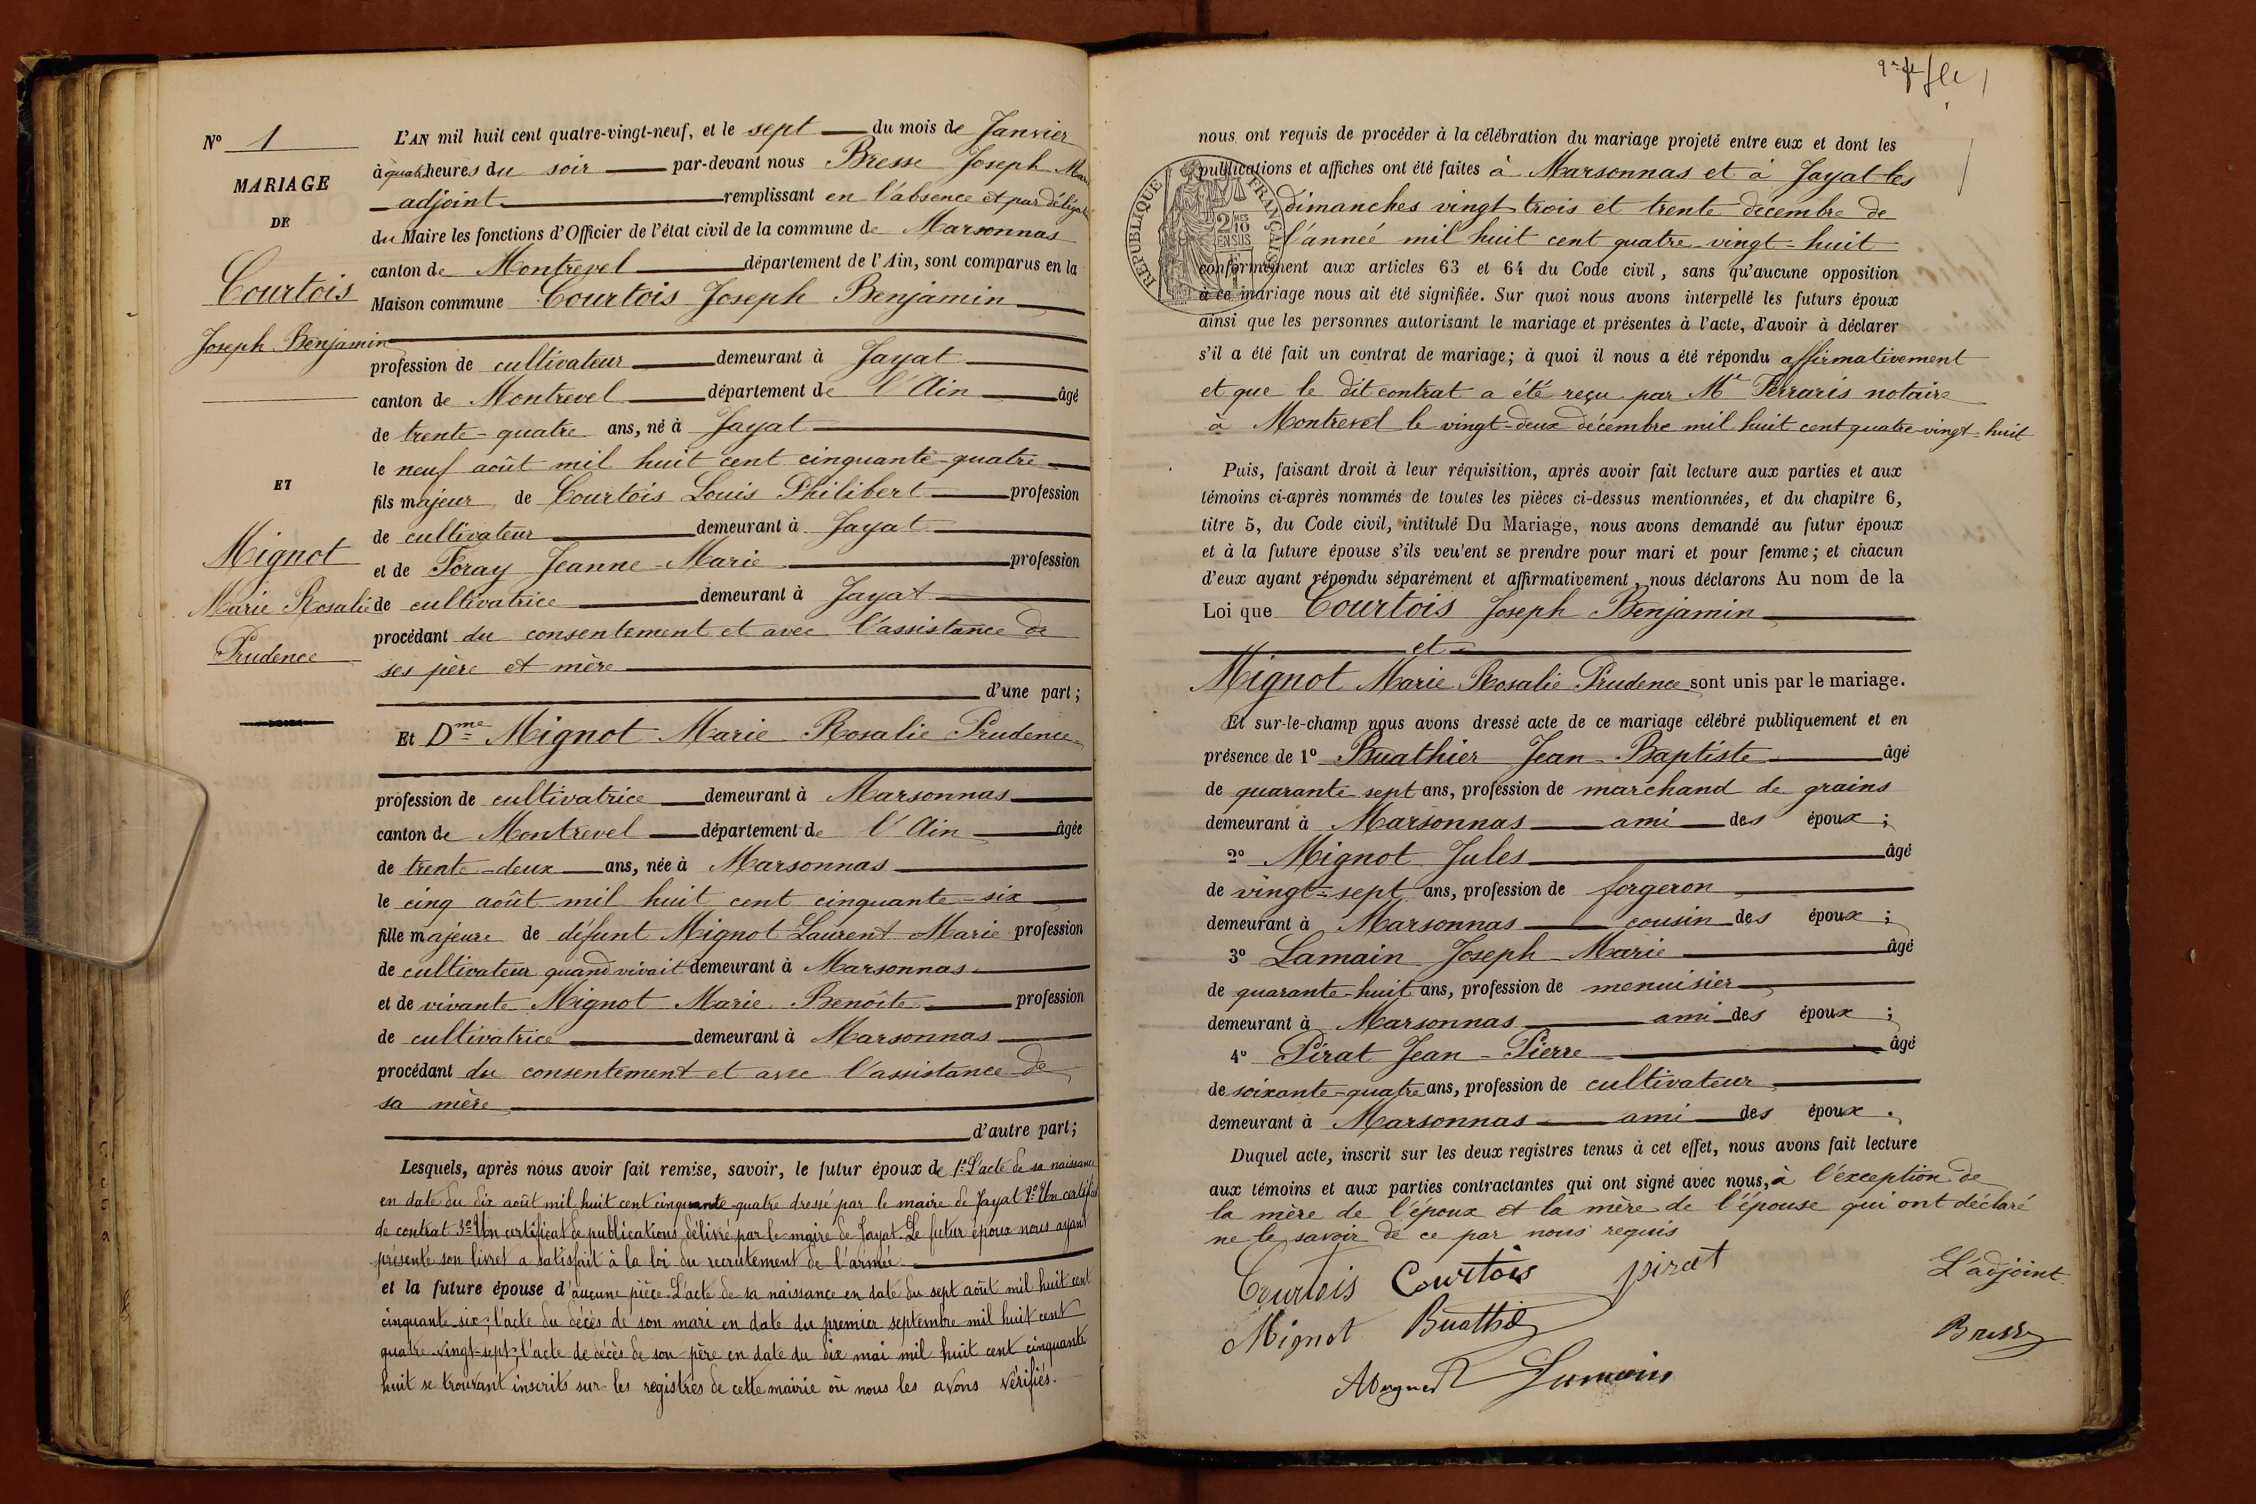 N° 1
MARIAGE
DE
Courtois
Joseph Benjamin
ET
Mignot
Marie Rosalie
Prudence
L'AN mil huit cent quatre-vingt-neuf, et le sept du mois de Janvier
à quatre heures du soir par-devant nous Bresse Joseph Marie
adjoint remplissant en l'absence et par délégation
du Maire les fonctions d'Officier de l'état civil de la commune de Marsonnas
canton de Montrevel département de l'Ain, sont comparus en la
Maison commune Courtois Joseph Benjamin
profession de cultivateur demeurant à Jayat
canton de Montrevel département de l'Ain âgé
de trente-quatre ans, né à Jayat
le neuf août mil huit cent cinquante-quatre
fils majeur de Courtois Louis Philibert profession
de cultivateur demeurant à Jayat
et de Foray Jeanne-Marie profession
de cultivatrice demeurant à Jayat
procédant du consentement et avec l'assistance de
ses père et mère
d'une part;
Et Dme Mignot Marie Rosalie Prudence
profession de cultivatrice demeurant à Marsonnas
canton de Montrevel département de l'Ain âgée
de trente-deux ans, née à Marsonnas
le cinq août mil huit cent cinquante-six
fille majeure de défunt Mignot Laurent Marie profession
de cultivateur quand vivait demeurant à Marsonnas
et de vivante Mignot Marie Benoite profession
de cultivatrice demeurant à Marsonnas
procédant du consentement et avec l'assistance de
sa mère
d'autre part;
Lesquels, après nous avoir fait remise, savoir, le futur époux de 1° L'acte de sa naissance
en date du dix août mil huit cent cinquante-quatre dressé par le maire de Jayat 2° Un certificat
de contrat 3° Un certificat de publications délivré par le maire de Jayat. Le futur époux nous ayant
présenté son livret a satisfait à la loi du recrutement de l'armée
et la future épouse d'aucune pièce. L'acte de sa naissance en date du sept août mil huit cent
cinquante-six; l'acte du décès de son mari en date du premier septembre mil huit cent
quatre-vingt-sept; l'acte de décès de son père en date du dix mai mil huit cent cinquante
huit se trouvant inscrits sur les registres de cette mairie où nous les avons vérifiés.
nous ont requis de procéder à la célébration du mariage projeté entre eux et dont les
publications et affiches ont été faites à Marsonnas et à Jayat les
dimanches vingt trois et trente décembre de
l'année mil huit cent quatre-vingt-huit
conformément aux articles 63 et 64 du Code civil, sans qu'aucune opposition
à ce mariage nous ait été signifiée. Sur quoi nous avons interpellé les futurs époux
ainsi que les personnes autorisant le mariage et présentes à l'acte, d'avoir à déclarer
s'il a été fait un contrat de mariage; à quoi il nous a été répondu affirmativement
et que le dit contrat a été reçu par Me Ferraris notaire
à Montrevel le vingt-deux décembre mil huit cent quatre-vingt-huit
RÉPUBLIQUE FRANÇAISE
2 10MES
EN SUS
Puis, faisant droit à leur réquisition, après avoir fait lecture aux parties et aux
témoins ci-après nommés de toutes les pièces ci-dessus mentionnées, et du chapitre 6,
titre 5, du Code civil, intitulé Du Mariage, nous avons demandé au futur époux
et à la future épouse s'ils veu'ent se prendre pour mari et pour femme; et chacun
d'eux ayant répondu séparément et affirmativement, nous déclarons Au nom de la
Loi que Courtois Joseph Benjamin
et
Mignot Marie Rosalie Prudence sont unis par le mariage.
Et sur-le-champ nous avons dressé acte de ce mariage célébré publiquement et en
présence de 1° Buathier Jean Baptiste âgé
de quarante sept ans, profession de marchand de grains
demeurant à Marsonnas ami des époux;
2° Mignot Jules âgé
de vingt-sept ans, profession de forgeron
demeurant à Marsonnas cousin des époux;
3° Lamain Joseph Marie âgé
de quarante-huit ans, profession de menuisier
demeurant à Marsonnas ami des époux;
4° Pirat Jean-Pierre âgé
de soixante-quatre ans, profession de cultivateur
demeurant à Marsonnas ami des époux.
Duquel acte, inscrit sur les deux registres tenus à cet effet, nous avons fait lecture
aux témoins et aux parties contractantes qui ont signé avec nous, à l'exception de
la mère de l'époux et la mère de l'épouse qui ont déclaré
ne le savoir de ce par nous requis
Courtois Courtois pirat L'adjoint
Mignot Buathier Bresse
Mignot Lamain